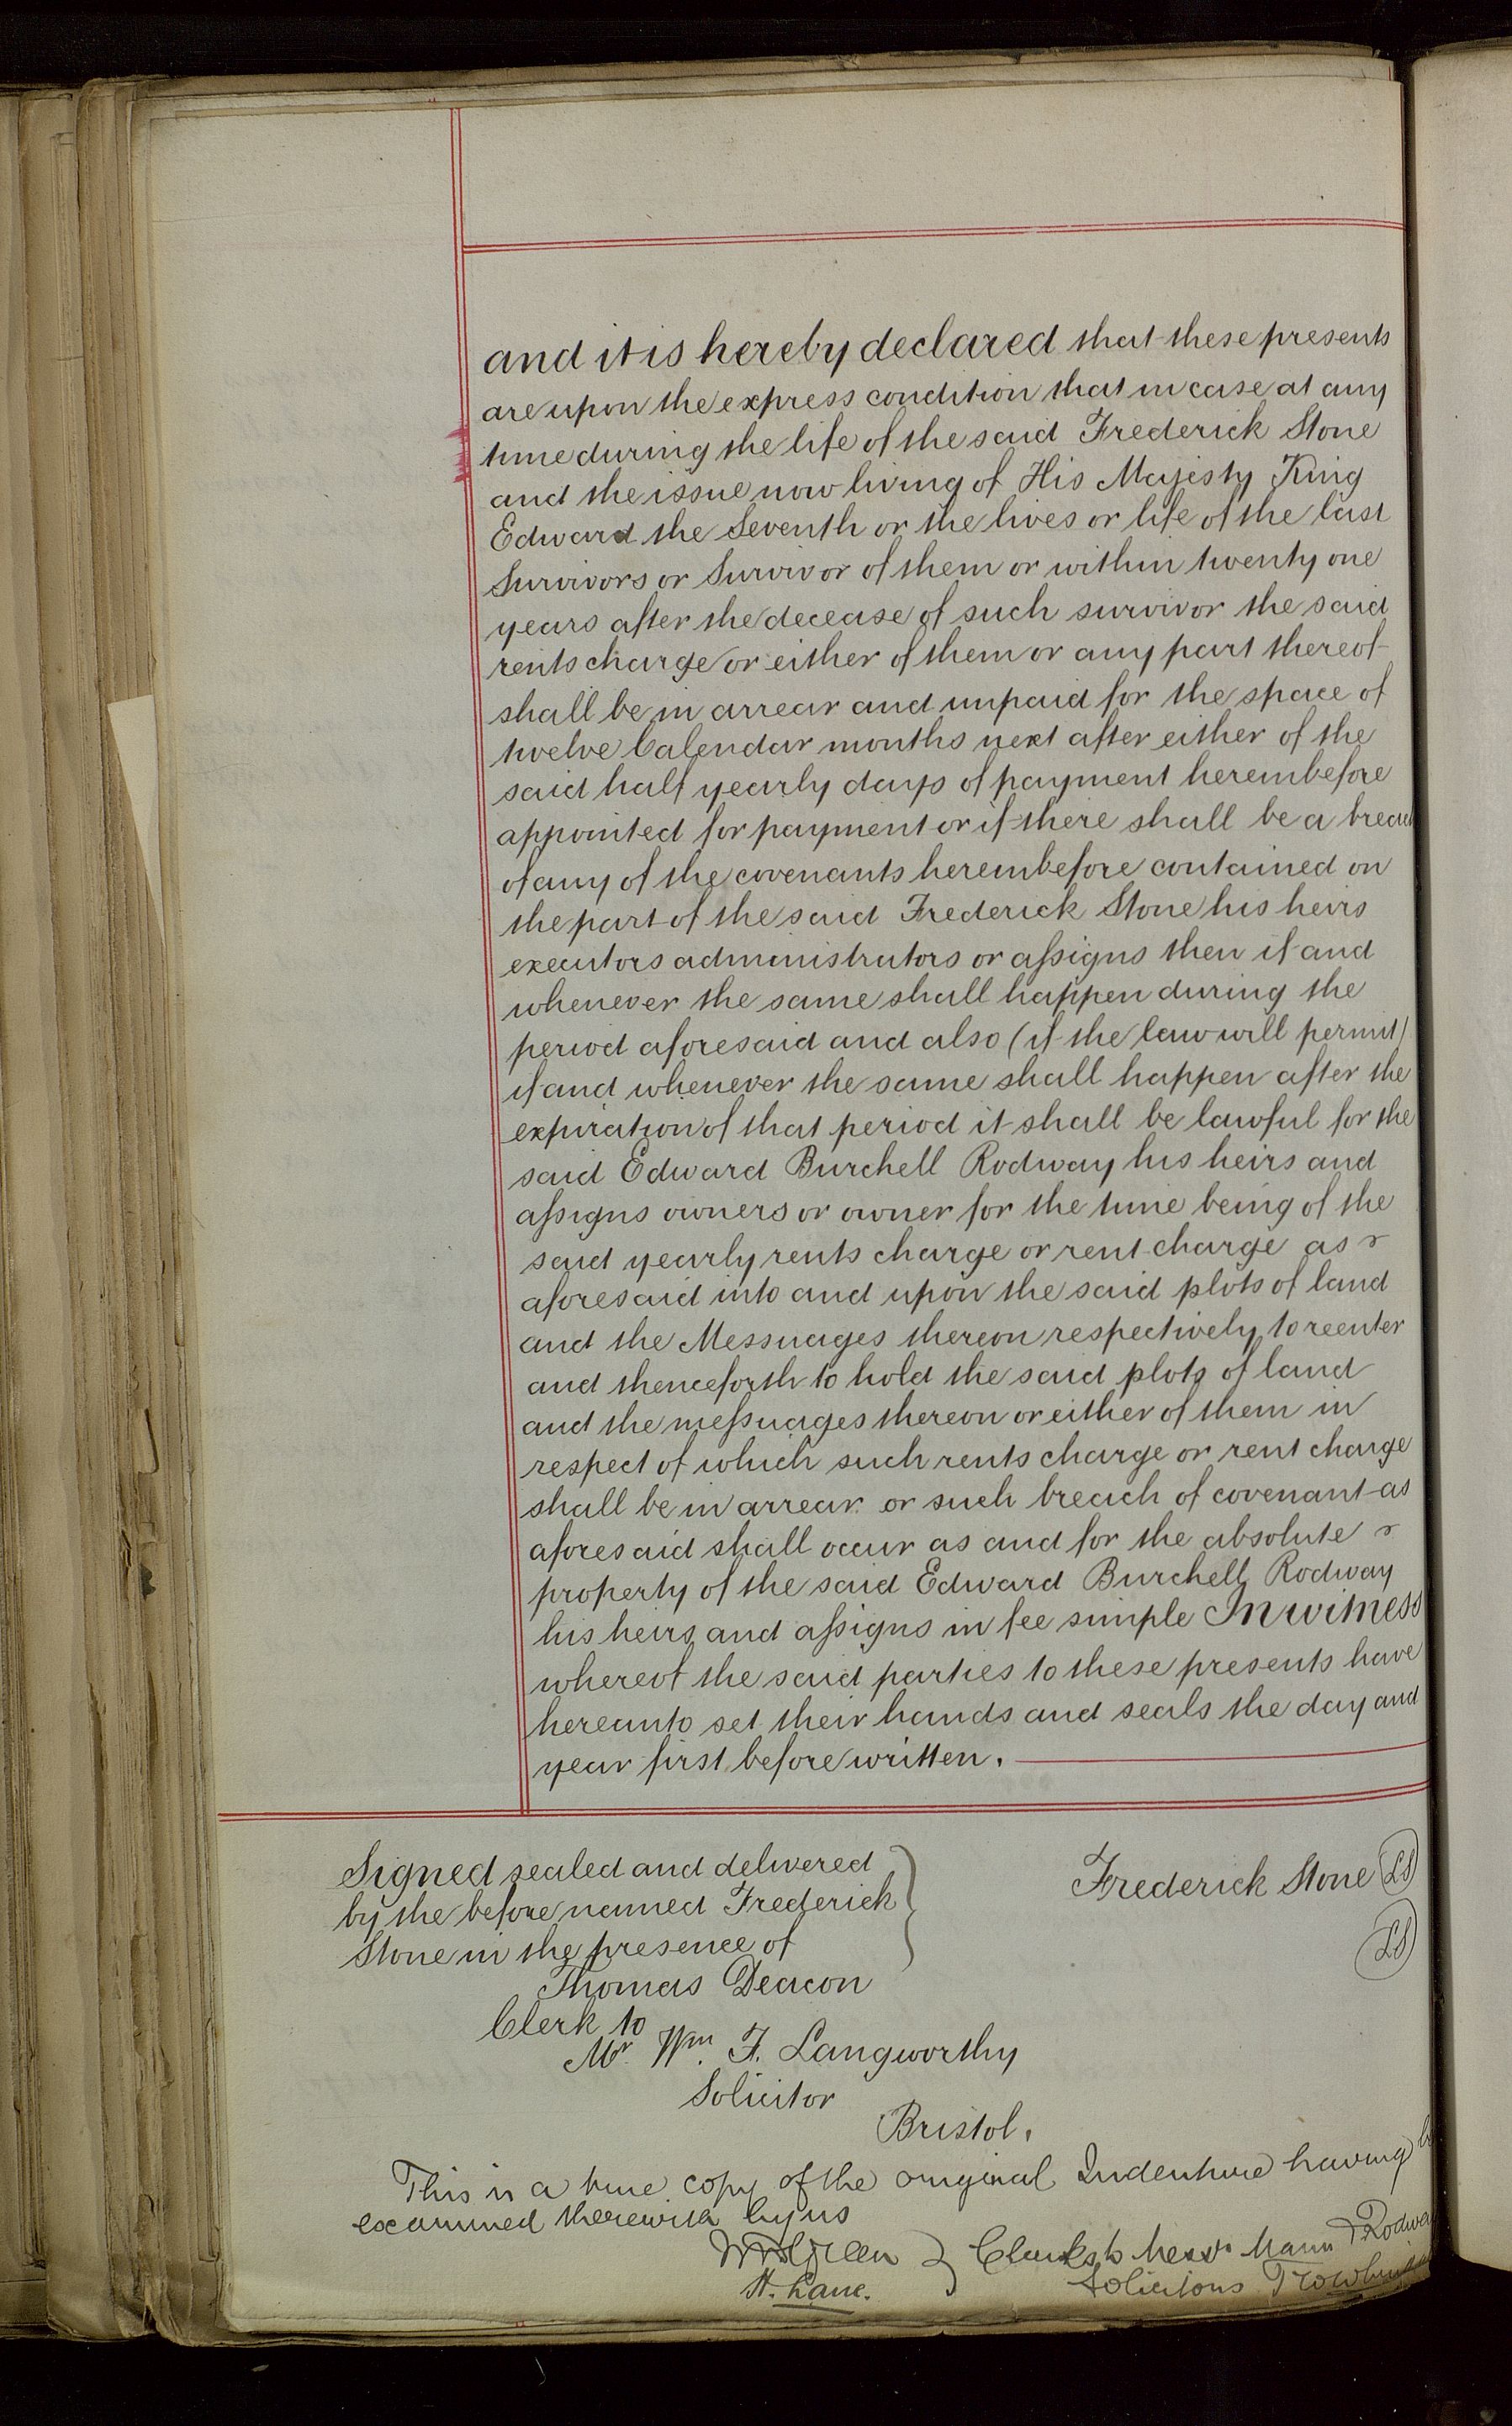 and it is hereby declared that these presents
are upon the express condition that in case at any
time during the life of the said Frederick Stone
and the issue now living of His Majesty King
Edward the Seventh or the lives or life of the last
Survivors or Survivor of them or within twenty one
years after the decease of such survivor the said
rents charge or either of them or any part thereof
shall be in arrear and unpaid for the space of
twelve Calendar months next after either of the
said half yearly days of payment hereinbefore
appointed for payment or if there shall be a breach
of any of the covenants hereinbefore contained on
the part of the said Frederick Stone his heirs
executors administrators or assigns then if and
whenever the same shall happen during the
period aforesaid and also (if the law will permit)
if and whenever the same shall happen after the
expiration of that period it shall be lawful for the
said Edward Burchell Rodway his heirs and
assigns owners or owner for the time being of the
said yearly rents charge or rent charge as
aforesaid into and upon the said plots of land
and the Messuages thereon respectively to reenter
and thenceforth to hold the said plots of land
and the messuages thereon or either of them in
respect of which such rents charge or rent charge
shall be in arrear or such breach of covenant as
aforesaid shall occur as and for the absolute
property of the said Edward Burchell Rodway
his heirs and assigns in fee simple In witness
whereof the said parties to these presents have
hereunto set their hands and seals the day and
year first before written.
Signed sealed and delivered
by the before named Frederick
Stone in the presence of
Frederick Stone LS
LS
Thomas Deacon
Clerk to
Mr. Wm. F. Langworthy
Solicitor
Bristol.
This is a true copy of the original Indenture having
examined therewith by us
Green
Clerks to Messrs Mann & Rodway
H. Lane.
Solicitors Trowbridge